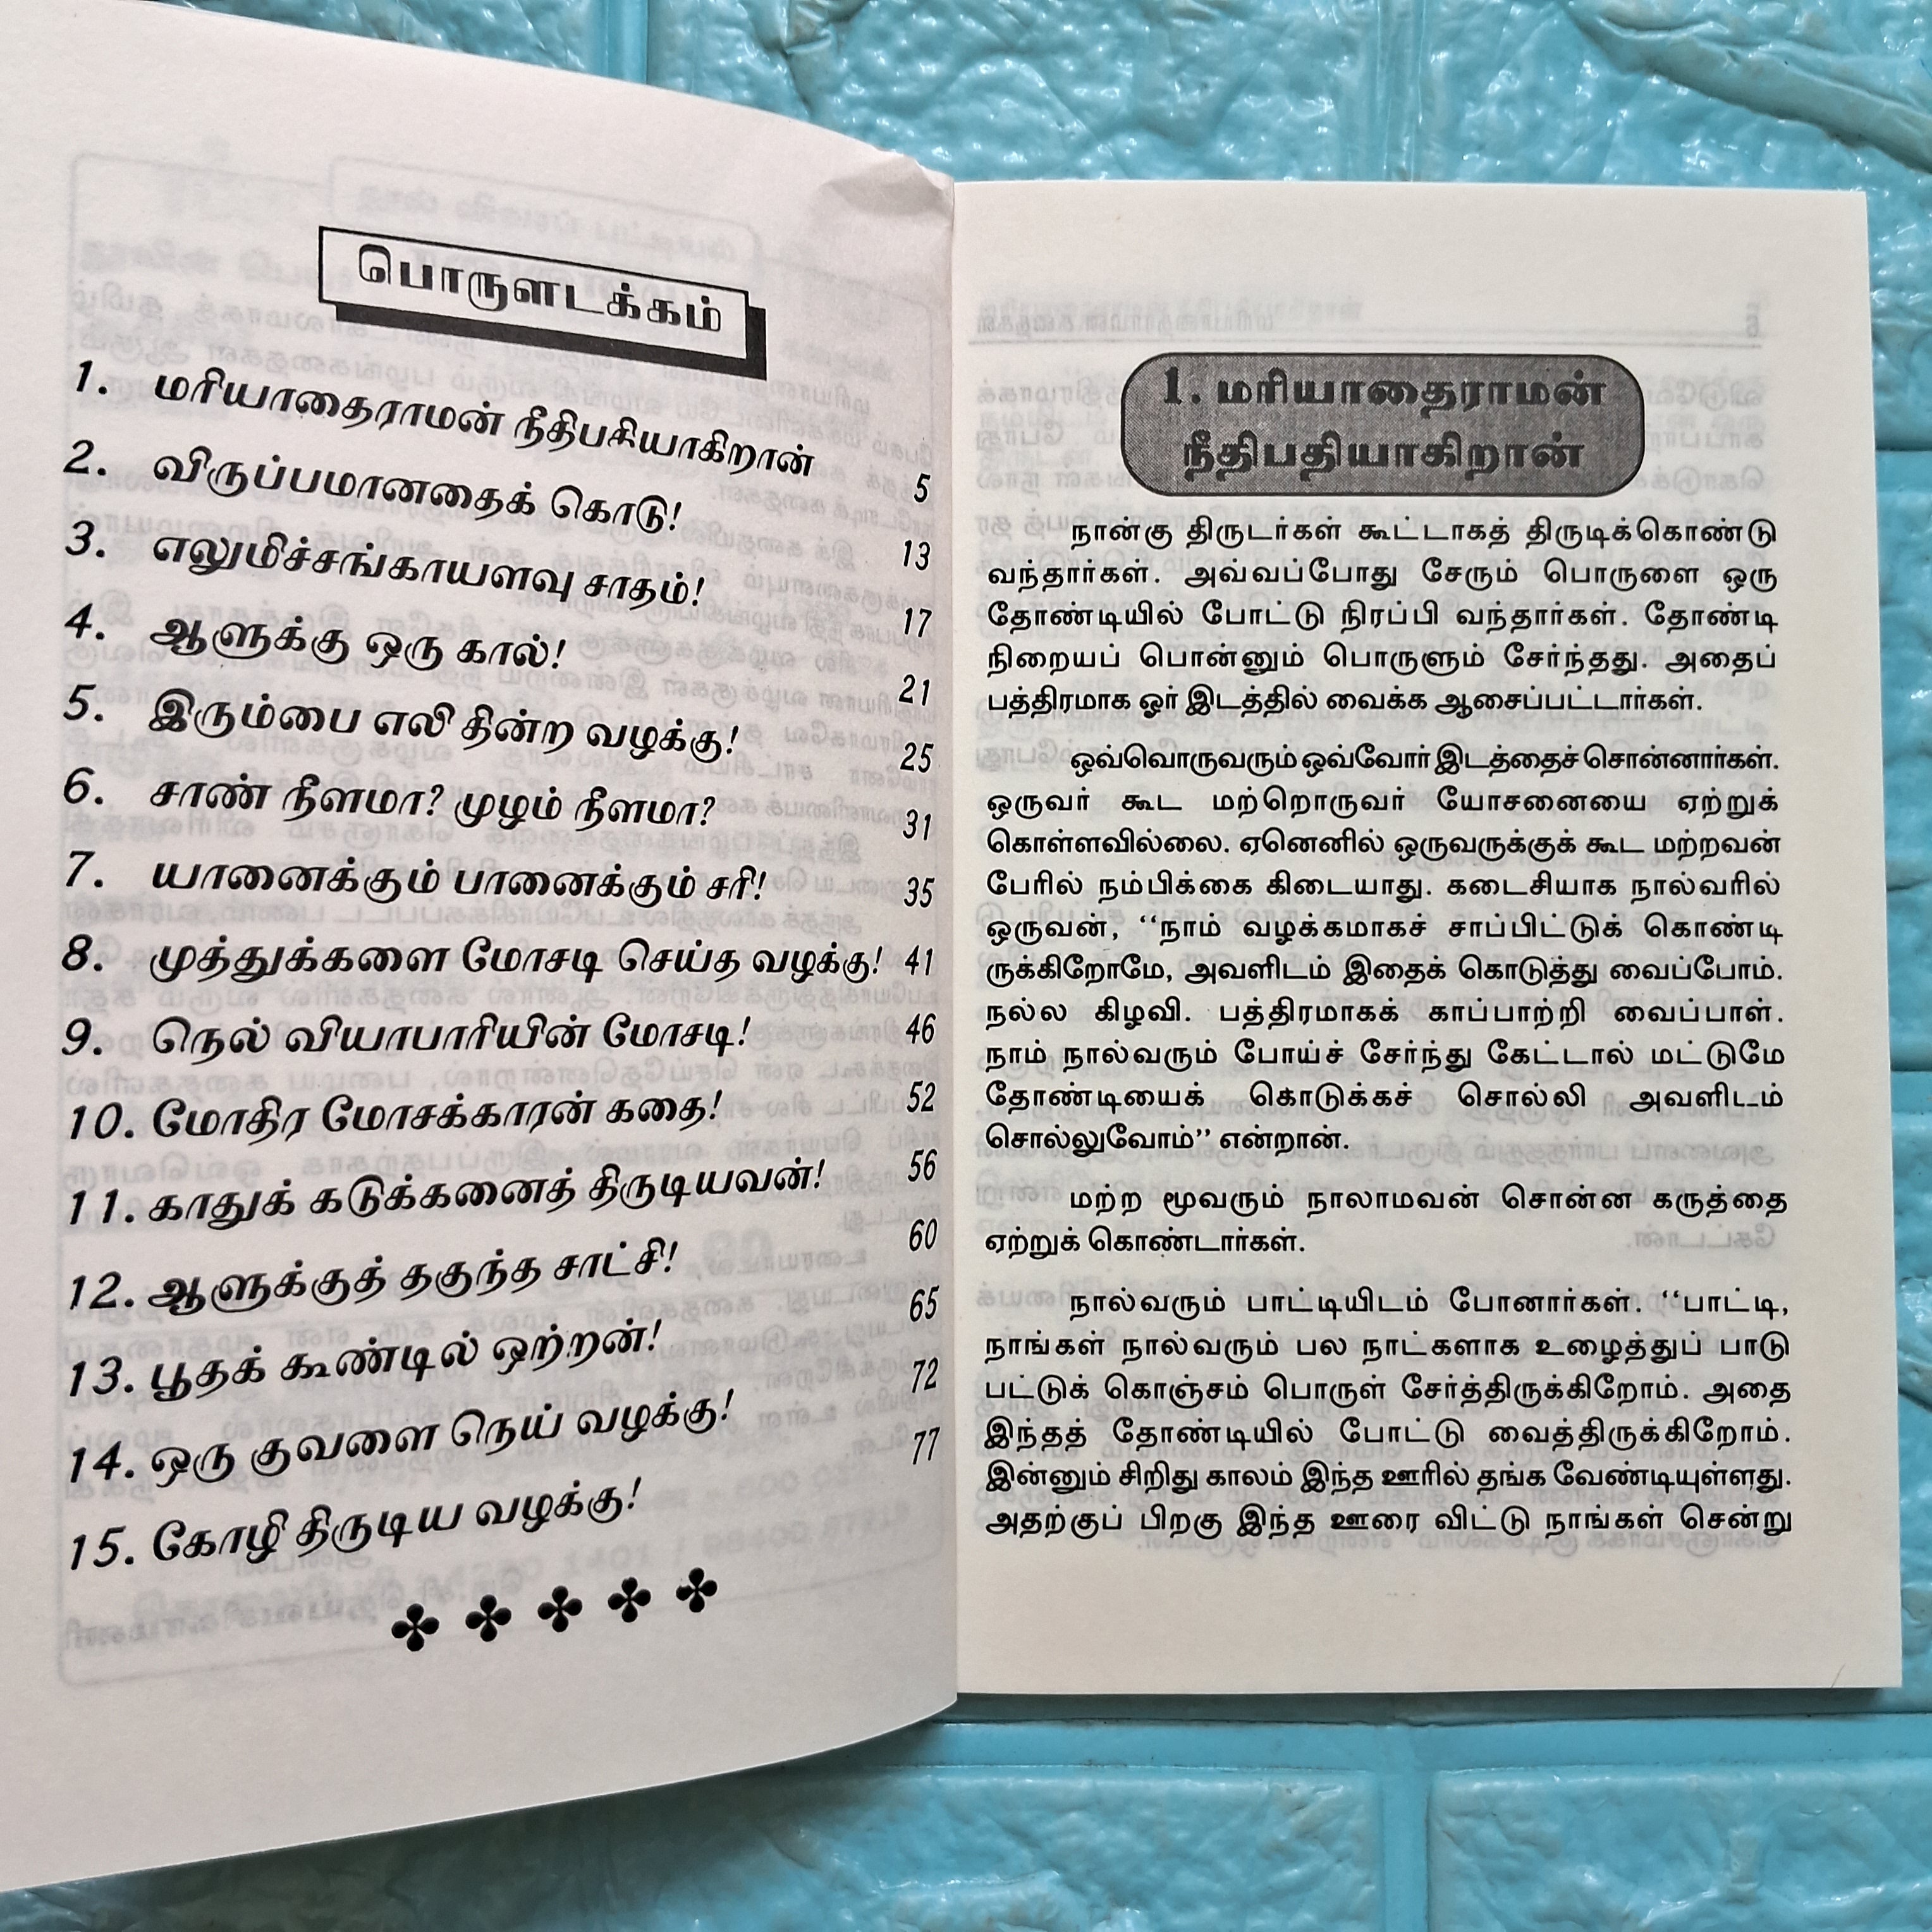 பொருளடக்கம்
1. மரியாதைராமன் நீதிபதியாகிறான் 5
2. விருப்பமானதைக் கொடு! 13
3. எலுமிச்சங்காயளவு சாதம்! 17
4. ஆளுக்கு ஒரு கால்! 21
5. இரும்பை எலி தின்ற வழக்கு! 25
6. சாண் நீளமா? முழம் நீளமா? 31
7. யானைக்கும் பானைக்கும் சரி! 35
8. முத்துக்களை மோசடி செய்த வழக்கு! 41
9. நெல் வியாபாரியின் மோசடி! 46
10. மோதிர மோசக்காரன் கதை! 52
11. காதுக் கடுக்கனைத் திருடியவன்! 56
12. ஆளுக்குத் தகுந்த சாட்சி! 60
13. பூதக் கூண்டில் ஒற்றன்! 65
14. ஒரு குவளை நெய் வழக்கு! 72
15. கோழி திருடிய வழக்கு! 77
1. மரியாதைராமன்
நீதிபதியாகிறான்
நான்கு திருடர்கள் கூட்டாகத் திருடிக்கொண்டு
வந்தார்கள். அவ்வப்போது சேரும் பொருளை ஒரு
தோண்டியில் போட்டு நிரப்பி வந்தார்கள். தோண்டி
நிறையப் பொன்னும் பொருளும் சேர்ந்தது. அதைப்
பத்திரமாக ஓர் இடத்தில் வைக்க ஆசைப்பட்டார்கள்.
ஒவ்வொருவரும் ஒவ்வோர் இடத்தைச் சொன்னார்கள்.
ஒருவர் கூட மற்றொருவர் யோசனையை ஏற்றுக்
கொள்ளவில்லை. ஏனெனில் ஒருவருக்குக் கூட மற்றவன்
பேரில் நம்பிக்கை கிடையாது. கடைசியாக நால்வரில்
ஒருவன், ‘‘நாம் வழக்கமாகச் சாப்பிட்டுக் கொண்டி
ருக்கிறோமே, அவளிடம் இதைக் கொடுத்து வைப்போம்.
நல்ல கிழவி. பத்திரமாகக் காப்பாற்றி வைப்பாள்.
நாம் நால்வரும் போய்ச் சேர்ந்து கேட்டால் மட்டுமே
தோண்டியைக் கொடுக்கச் சொல்லி அவளிடம்
சொல்லுவோம்’’ என்றான்.
மற்ற மூவரும் நாலாமவன் சொன்ன கருத்தை
ஏற்றுக் கொண்டார்கள்.
நால்வரும் பாட்டியிடம் போனார்கள். ‘‘பாட்டி,
நாங்கள் நால்வரும் பல நாட்களாக உழைத்துப் பாடு
பட்டுக் கொஞ்சம் பொருள் சேர்த்திருக்கிறோம். அதை
இந்தத் தோண்டியில் போட்டு வைத்திருக்கிறோம்.
இன்னும் சிறிது காலம் இந்த ஊரில் தங்க வேண்டியுள்ளது.
அதற்குப் பிறகு இந்த ஊரை விட்டு நாங்கள் சென்று